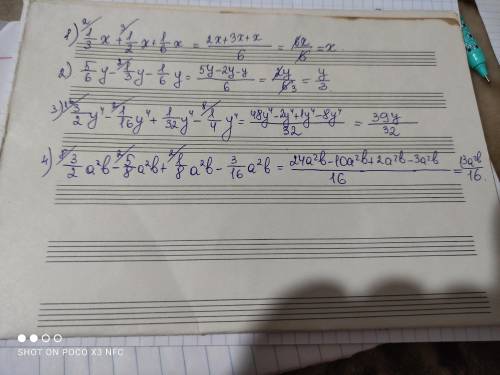 1) 1/3 x + 1/2 x + 1/6 x = (2x+3x+x)/6 = 6x/6 = x.
2) 5/6 y - 1/3 y - 1/6 y = (5y-2y-y)/6 = 2y/6 3 = y/3
3) 3/2 y⁴ - 1/16 y⁴ + 1/32 y⁴ - 1/4 y⁴ = (48y⁴-2y⁴+1y⁴-8y⁴)/32 = 39y/32
4) 3/2 a²b - 5/8 a²b + 1/8 a²b - 3/16 a²b = (24a²b-10a²b+2a²b-3a²b)/16 = 13a²b/16.
SHOT ON POCO X3 NFC